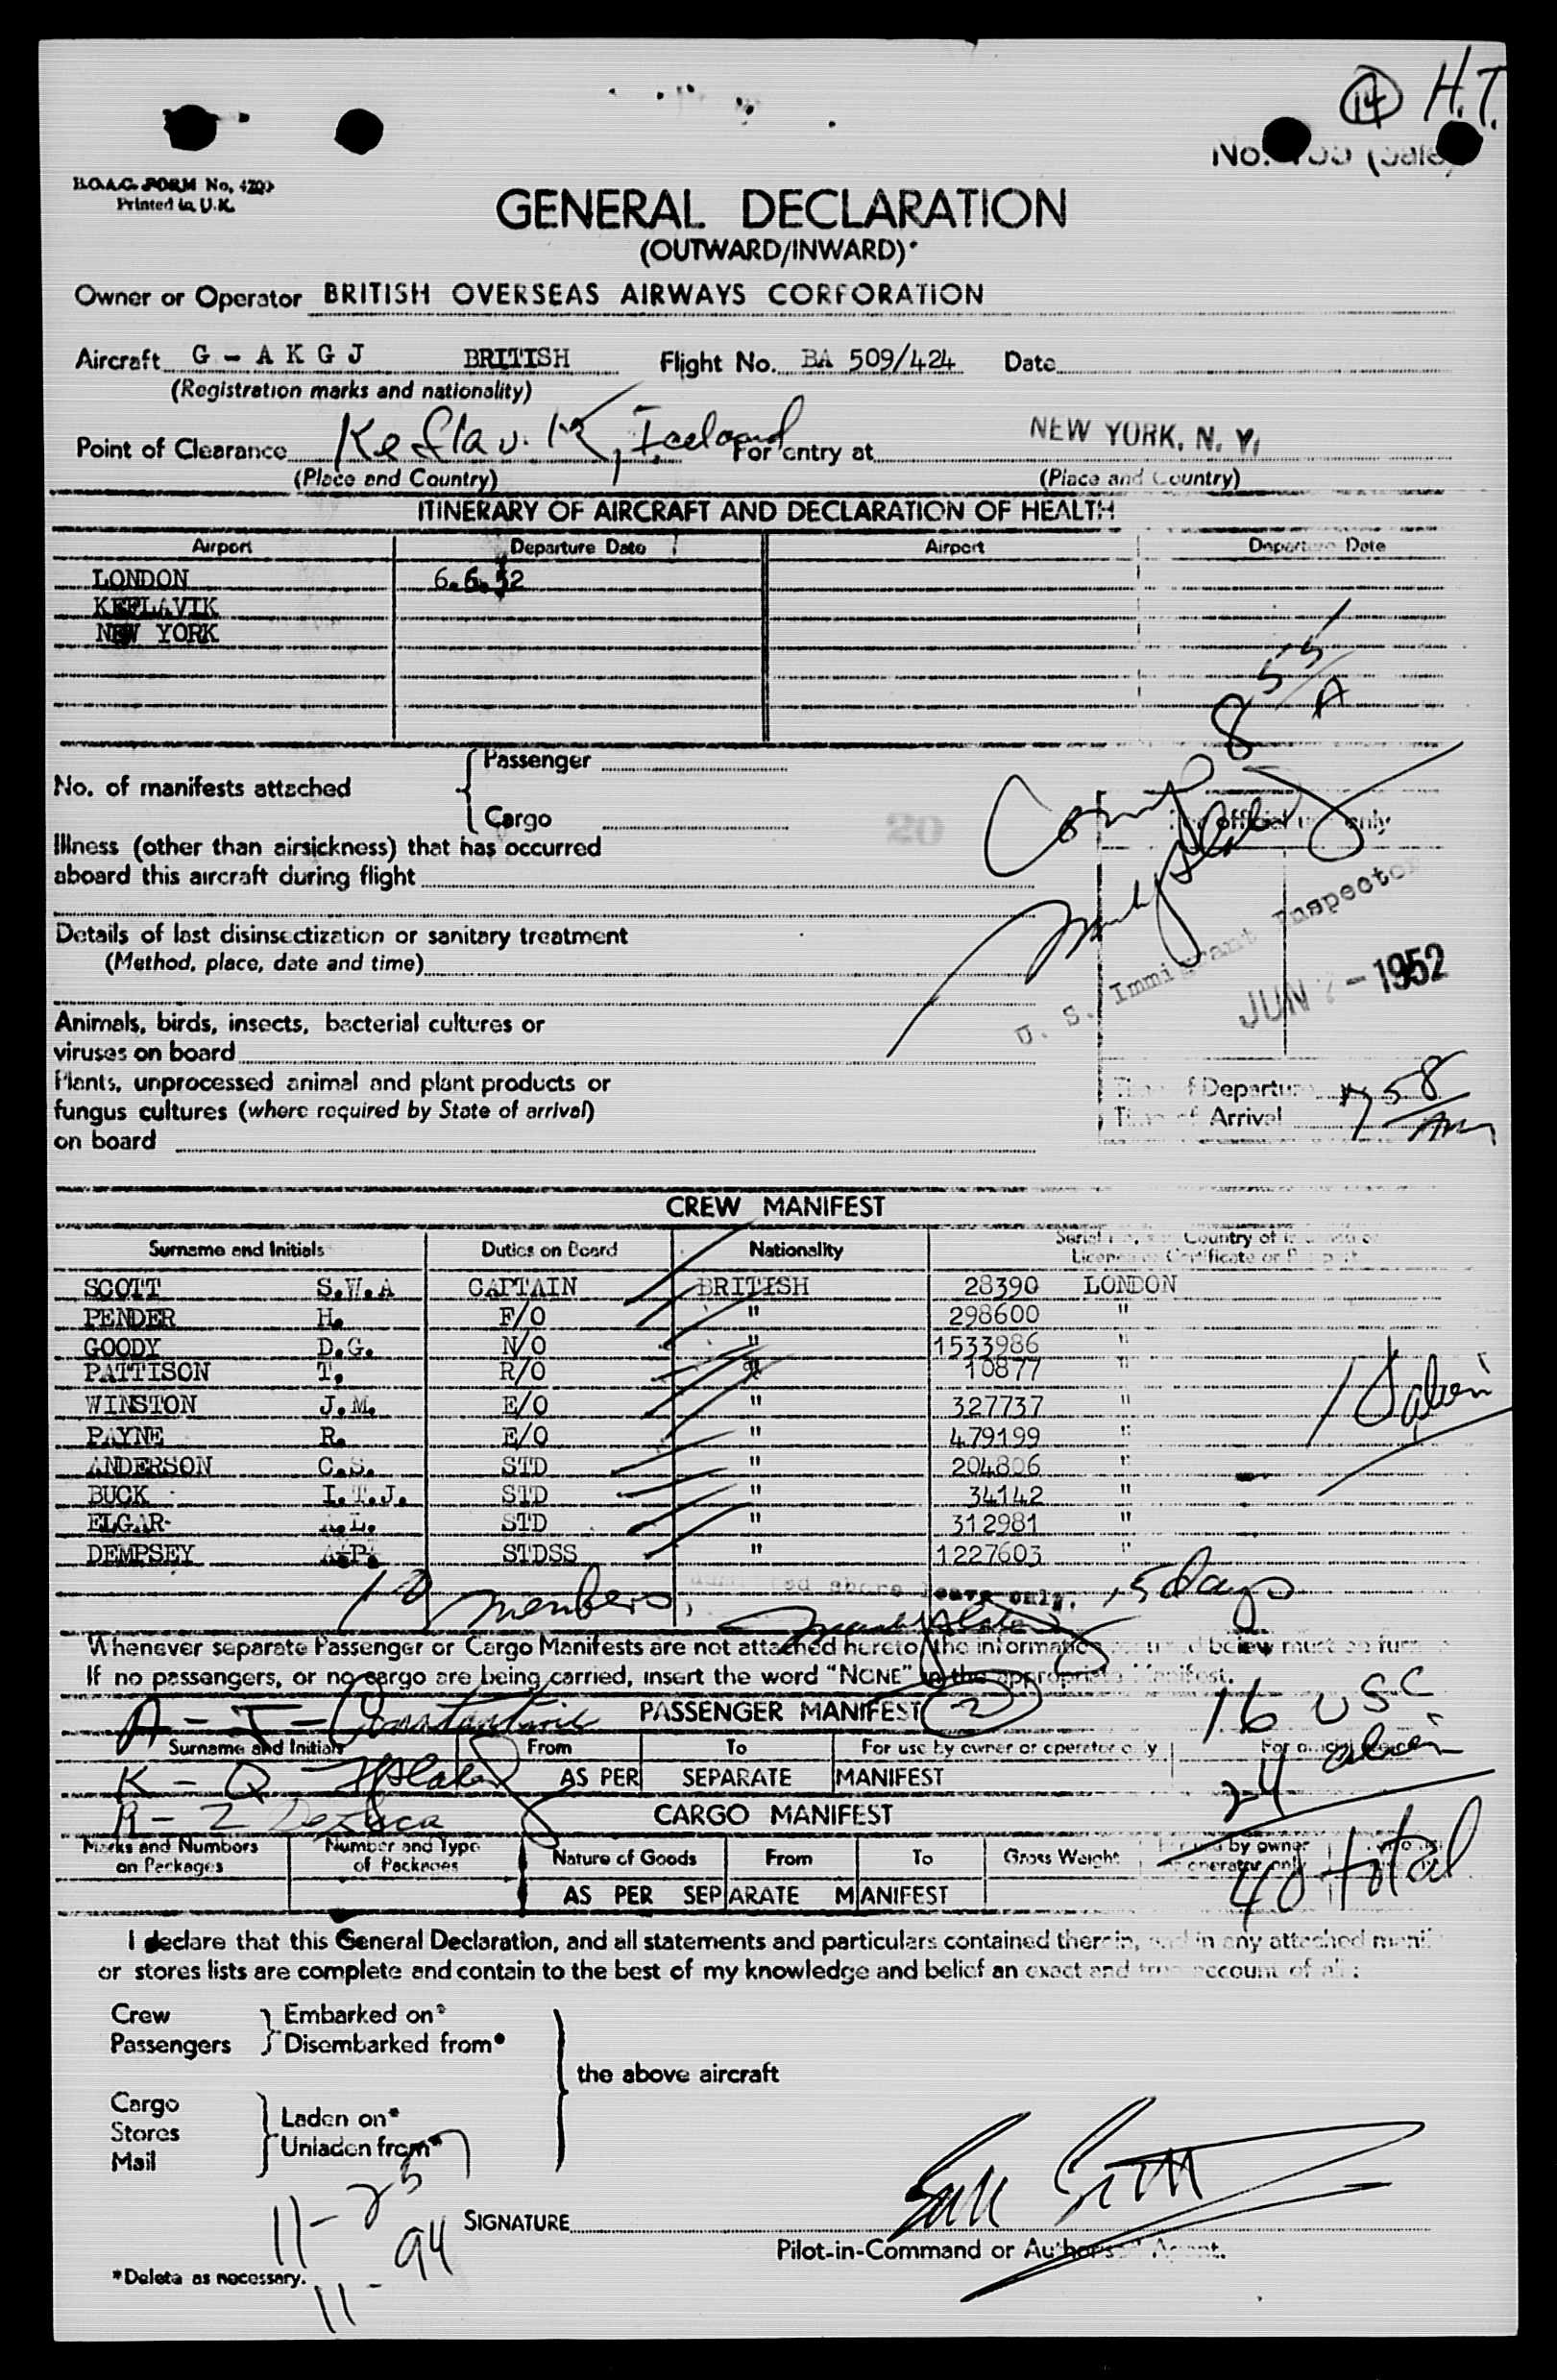 14 H.T.
No.
B.O.A.C. FORM No. 4200
Printed in U.K.
GENERAL DECLARATION
(OUTWARD/INWARD)*
Owner or Operator BRITISH OVERSEAS AIRWAYS CORPORATION
Aircraft G - A K G J BRITISH Flight No. BA 509/424 Date
(Registration marks and nationality)
Point of Clearance Keflavik, Iceland For entry at NEW YORK, N. Y.
(Place and Country) (Place and Country)
ITINERARY OF AIRCRAFT AND DECLARATION OF HEALTH
Airport Departure Date Airport Departure Date
LONDON 6.6.52
KEFLAVIK
NEW YORK
Comp 8 55/A
Passenger
No. of manifests attached
Cargo
20
For official use only
Illness (other than airsickness) that has occurred
aboard this aircraft during flight
U. S. Immigrant Inspector
Details of last disinsectization or sanitary treatment
(Method, place, date and time)
JUN 7 - 1952
Animals, birds, insects, bacterial cultures or
viruses on board
Plants, unprocessed animal and plant products or
fungus cultures (where required by State of arrival)
on board
Time of Departure
Time of Arrival 7 58 AM
CREW MANIFEST
Surname and Initials Duties on Board Nationality Serial No. Country of Licence Certificate or
SCOTT S.W.A CAPTAIN BRITISH 28390 LONDON
PENDER H. F/O " 298600 "
GOODY D.G. N/O " 1533986 "
PATTISON T. R/O " 10877 "
WINSTON J.M. E/O " 327737 "
PAYNE R. E/O " 479199 "
ANDERSON C.S. STD " 204806 "
BUCK I.T.J. STD " 34142 "
ELGAR A.L. STD " 312981 "
DEMPSEY A.P. STDSS " 1227603 "
10 members
shore leave only, 15 days
Whenever separate Passenger or Cargo Manifests are not attached hereto the information below must be
If no passengers, or no cargo are being carried, insert the word "NONE" in the appropriate Manifest.
PASSENGER MANIFEST 2
16 USC
A - J - Constantine
Surname and Initials From To For use by owner or operator only For official use only
24 alien
K - Q - AS PER SEPARATE MANIFEST
R - Z DeLuca
CARGO MANIFEST
40 total
Marks and Numbers on Packages Number and Type of Packages Nature of Goods From To Gross Weight For use by owner or operator only
AS PER SEPARATE MANIFEST
I declare that this General Declaration, and all statements and particulars contained therein, and in any attached
or stores lists are complete and contain to the best of my knowledge and belief an exact and true account of all :
Crew Embarked on*
Passengers Disembarked from*
the above aircraft
Cargo
Laden on*
Stores
Unladen from*
Mail
11-257
SIGNATURE
Pilot-in-Command or Authorised Agent.
*Delete as necessary.
11-94